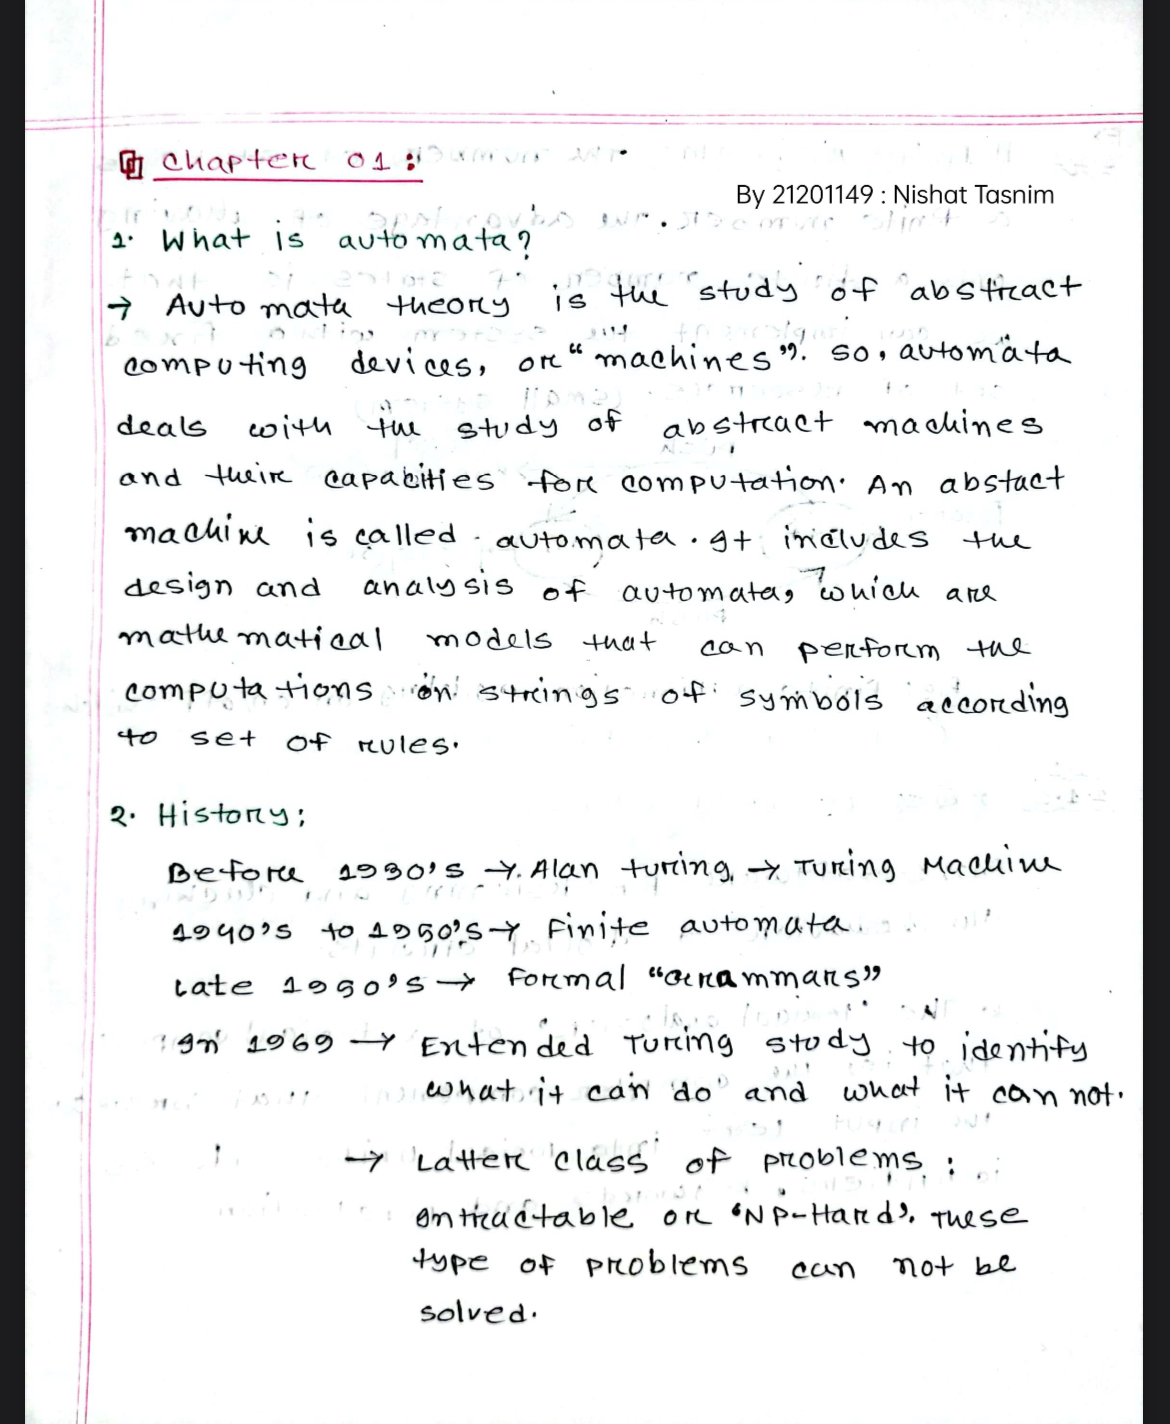 Chapter 01:
By 21201149 : Nishat Tasnim
1. What is automata?
→ Automata theory is the study of abstract
computing devices, or "machines". so, automata
deals with the study of abstract machines
and their capabities for computation. An abstact
machine is called automata. It includes the
design and analysis of automata, which are
mathematical models that can perform the
computations on strings of symbols according
to set of rules.
2. History:
Before 1930's → Alan turing → Turing Machine
1940's to 1950's → Finite automata
Late 1950's → Formal "Grammars"
In 1969 → Extended Turing study to identify
what it can do and what it can not.
→ Latter class of problems :
Intractable or 'NP-Hard'. These
type of problems can not be
solved.